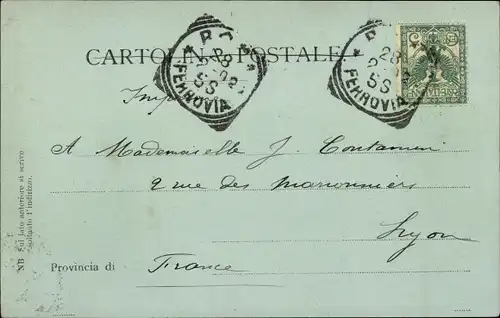 CARTOLINA POSTALE
ROMA
28
2 02
5S
FERROVIA
28
2
5S
FERROVIA
A Mademoiselle J. Contamin
2 rue des maronniers
Lyon
Provincia di France
NB Sul lato anteriore si scrive
soltanto l'indirizzo.